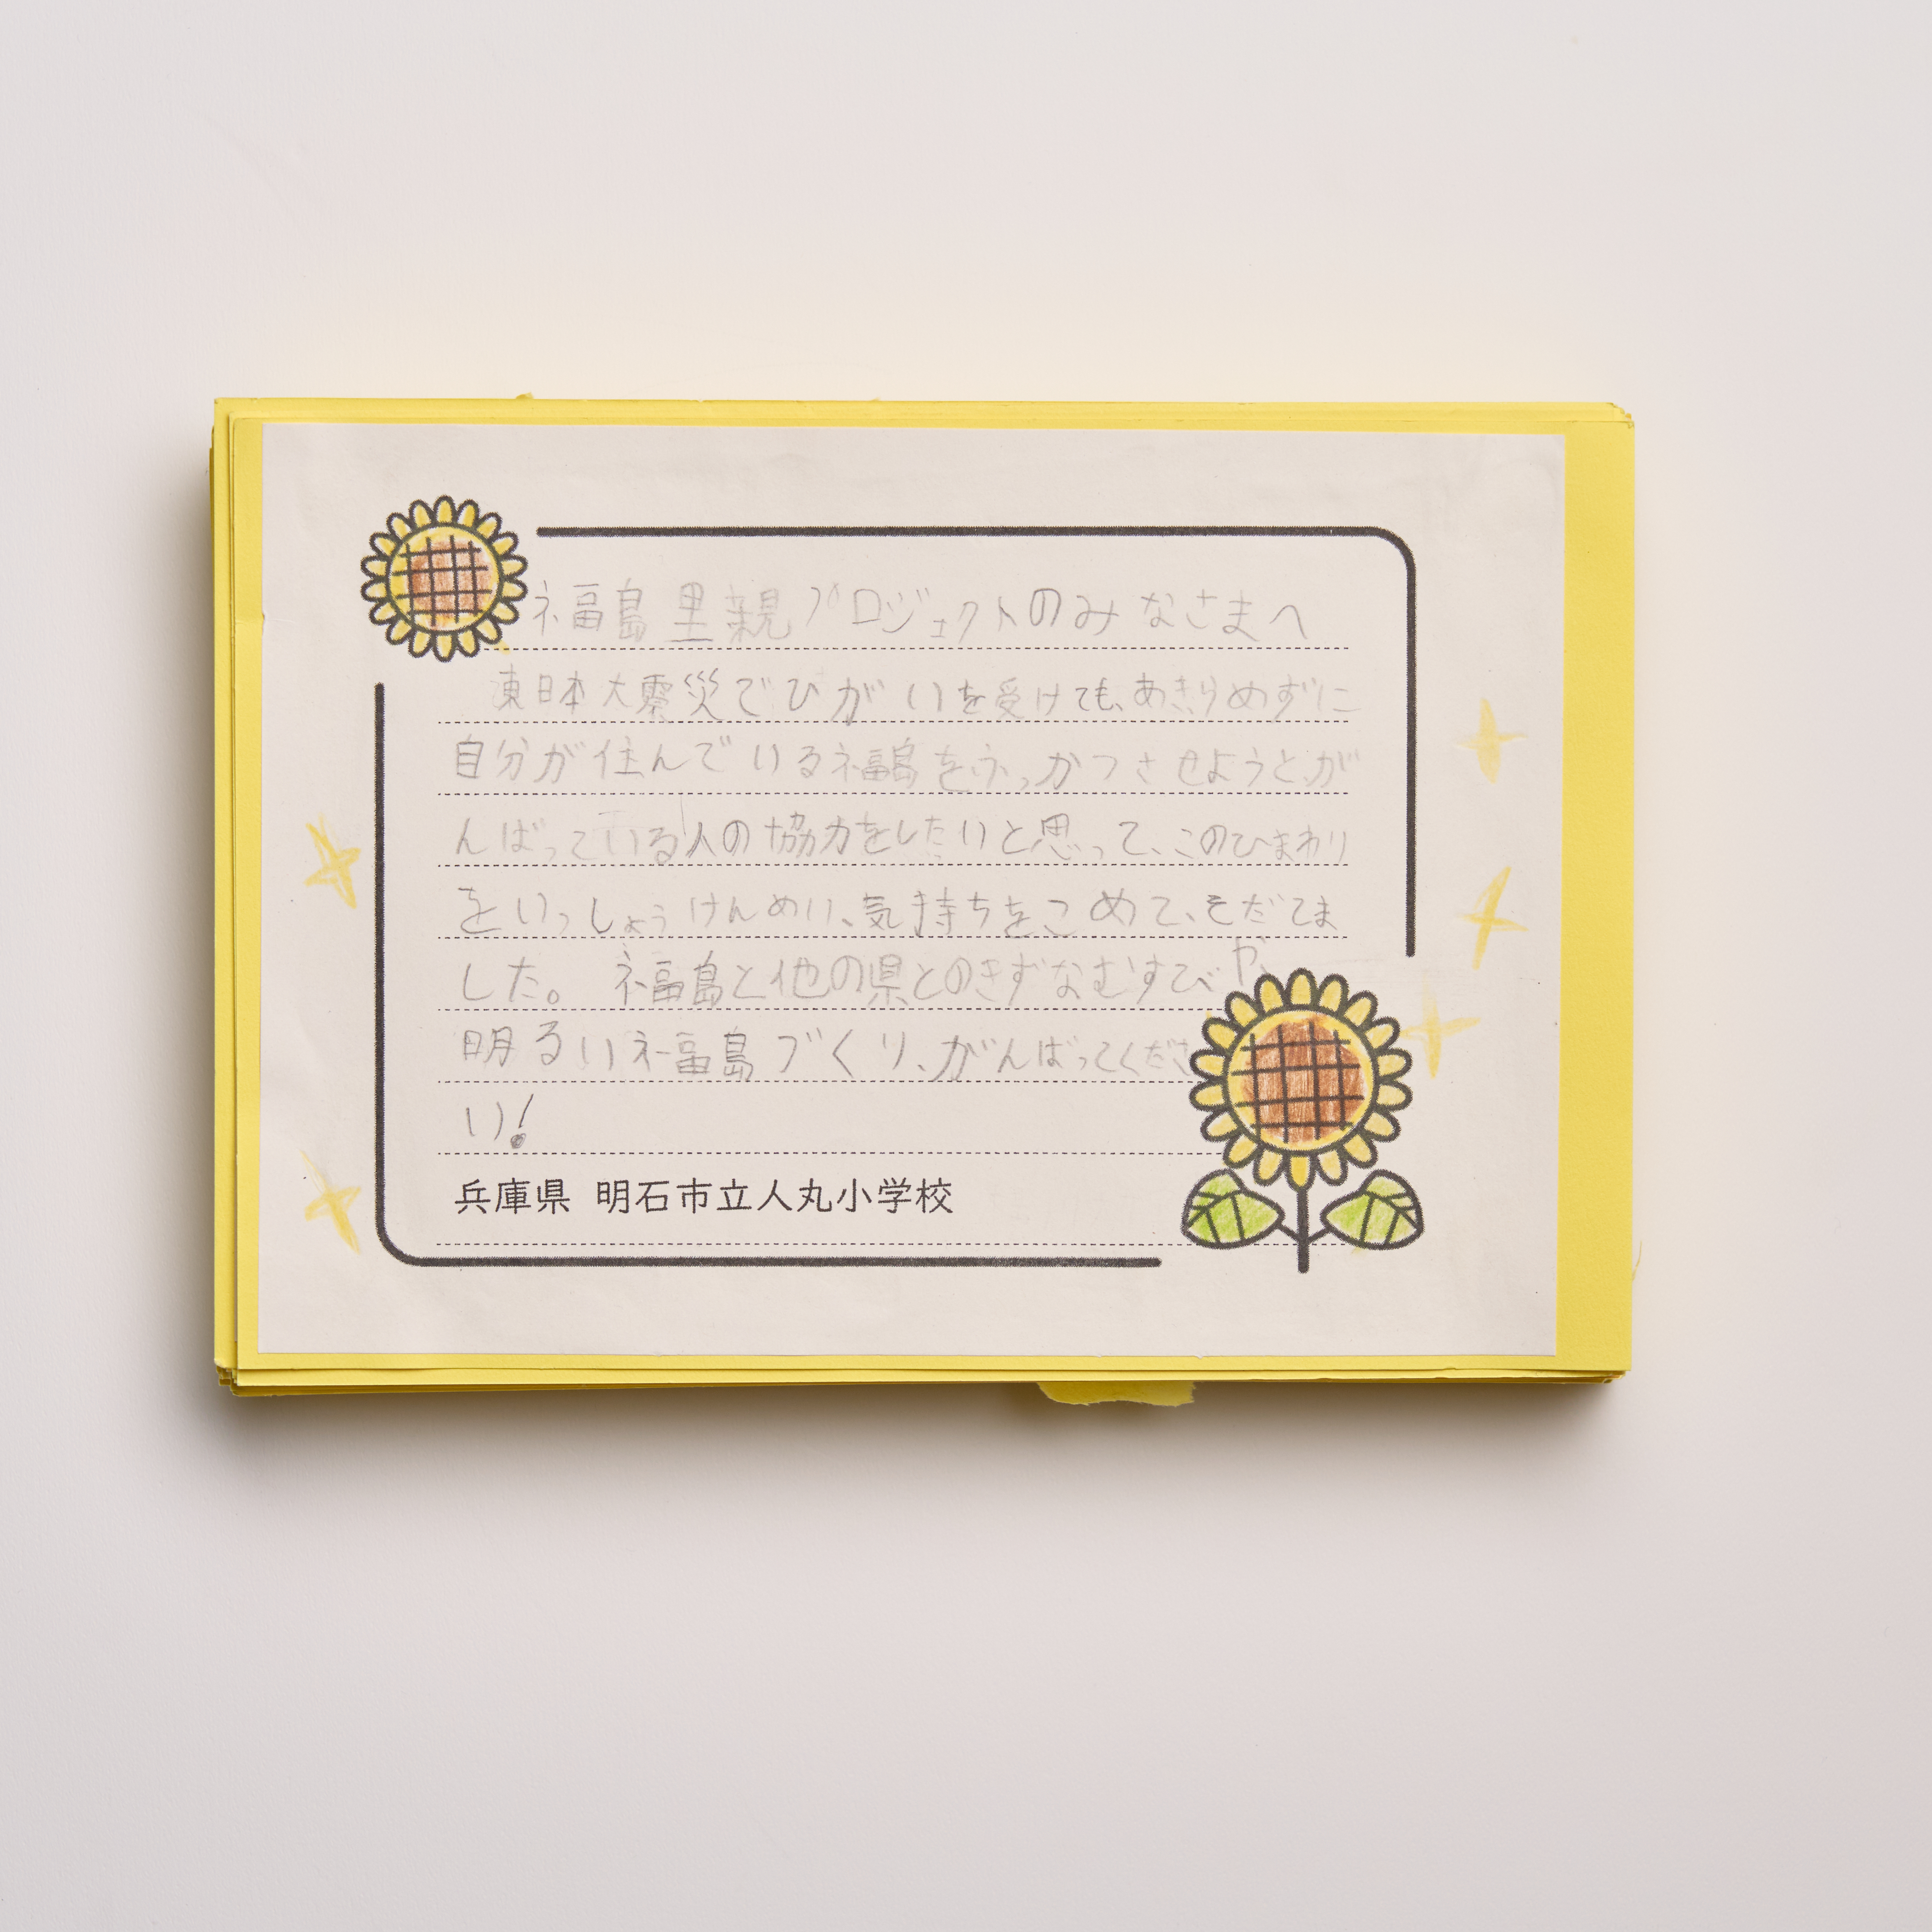 福島里親プロジェクトのみなさまへ
東日本大震災でひがいを受けても、あきらめずに
自分が住んでいる福島をふっかつさせようと、が
んばっている人の協力をしたいと思って、このひまわり
をいっしょうけんめい、気持ちをこめて、そだてま
した。 福島と他の県とのきずなむすびや、
明るい福島づくり、がんばってくださ
い!
兵庫県 明石市立人丸小学校